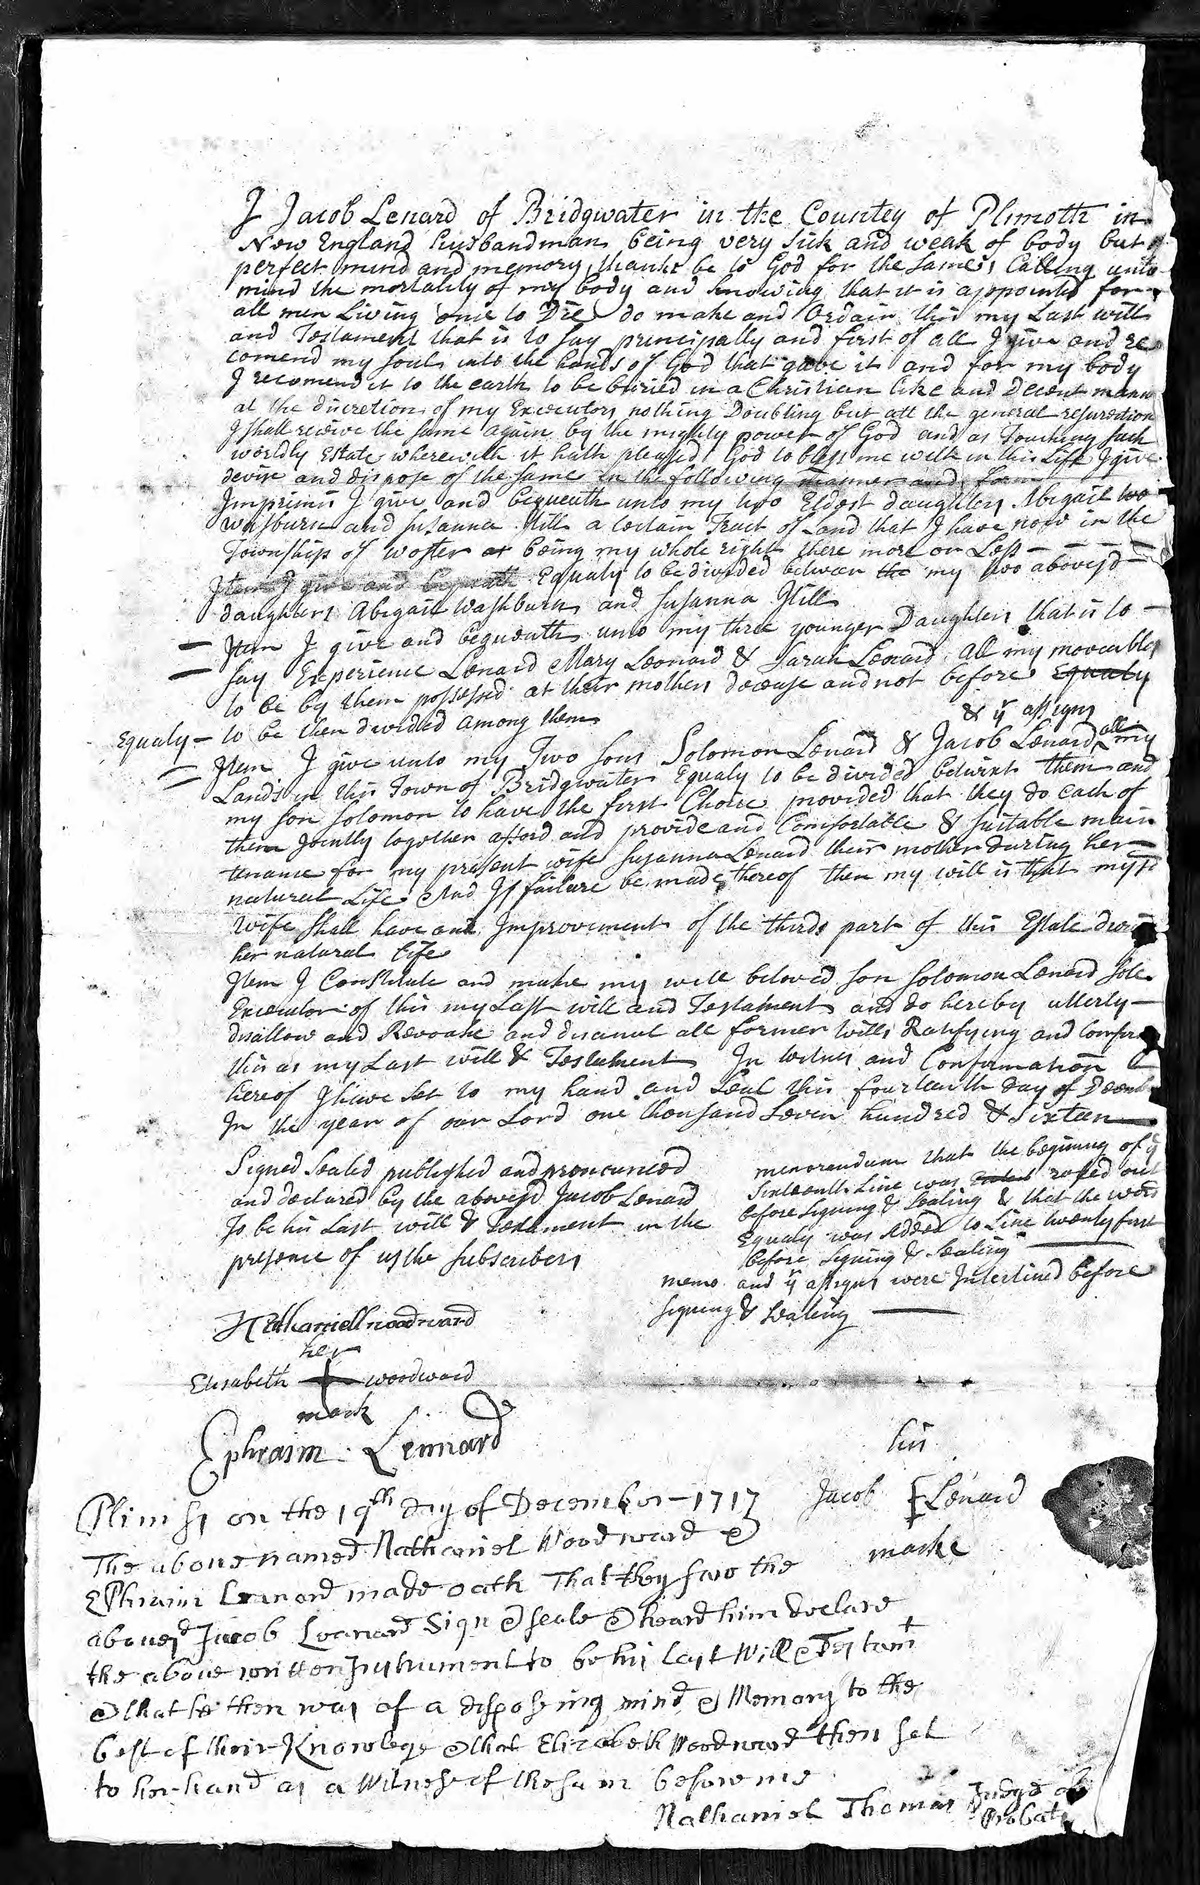 I Jacob Lenard of Bridgwater in the Countey of Plimoth in
New England husbandman being very sick and weak of body but
perfect mind and memory thanks be to God for the same; Calling unto
mind the mortality of my body and knowing that it is appointed for
all men Living once to Die do make and Ordain this my Last will
and Testament that is to say principally and first of all I give and re
comend my soul into the hands of God that gave it and for my body
I recomend it to the earth to be buried in a Christian like and decent
at the discretion of my Executors nothing Doubting but att the general resurection
I shall receive the same again by the mighty power of God and as Touching such
worldly Estate wherewith it hath pleased God to bless me with in this Life I give
devise and dispose of the same in the following manner and form
Imprimis I give and bequeath unto my two Eldest daughters Abigail
Washburn and Susanna Hill a certain Tract of Land that I have now in the
Township of Woster being my whole right there more or Less
Item I give and bequeath Equaly to be divided between the my two abovesd
daughters Abigail Washburn and Susanna Hill
Item I give and bequeath unto my three younger Daughters that is to
say Experience Lenard Mary Leonard & Sarah Lenard all my moveables
to be by them possessed at their mothers decease and not before Equaly
Equaly to be then divided among them
& ye assigns
Item I give unto my Two sons Solomon Lenard & Jacob Lenard all my
Lands in this Town of Bridgwater Equaly to be divided betwixt them and
my son Solomon to have the first Choice provided that they do each of
them Joyntly together afford and provide and Comfortable & suitable main
tenance for my present wife Susanna Lenard their mother during her
natural Life And If failure be made thereof then my will is that my sd
wife shall have and Improvement of the thirds part of this Estate
her natural life
Item I Constitute and make my well beloved son Solomon Lenard sole
Executor of this my Last will and Testament and do hereby utterly
disallow and Revoake and disanul all former wills Ratifying and
this as my Last will & Testament In witnes and Confirmation
hereof I have set to my hand and seal this fourteenth day of
In the year of our Lord one thousand seven hundred & sixteen
Signed sealed published and pronounced
and declared by the abovesd Jacob Lenard
To be his Last will & Testament in the
presence of us the subscribers
memorandum that the begining of ye
sixteenth Line was rased out
before signing & sealing & that the word
Equaly was Added to Line twenty first
before signing & sealing
memo and ye assigns were Interlined before
signing & sealing
Nathaniell woodward
her
Elisabeth woodward
mark
Ephraim Lennard
his
Jacob Lenard
marke
Plim ss on the 19th day of December 1717
The above named Nathaniel Woodward &
Ephraim Lenard made oath That they saw the
abovesd Jacob Leonard Sign & seale & heard him declare
the above written Instrument to be his Last Will & Testamt
& that he then was of a disposing mind & Memory to the
best of their Knowlege & that Elizabeth Woodward then set
to her hand as a Witness of the sam before me
Nathaniel Thomas Judge of
Probate